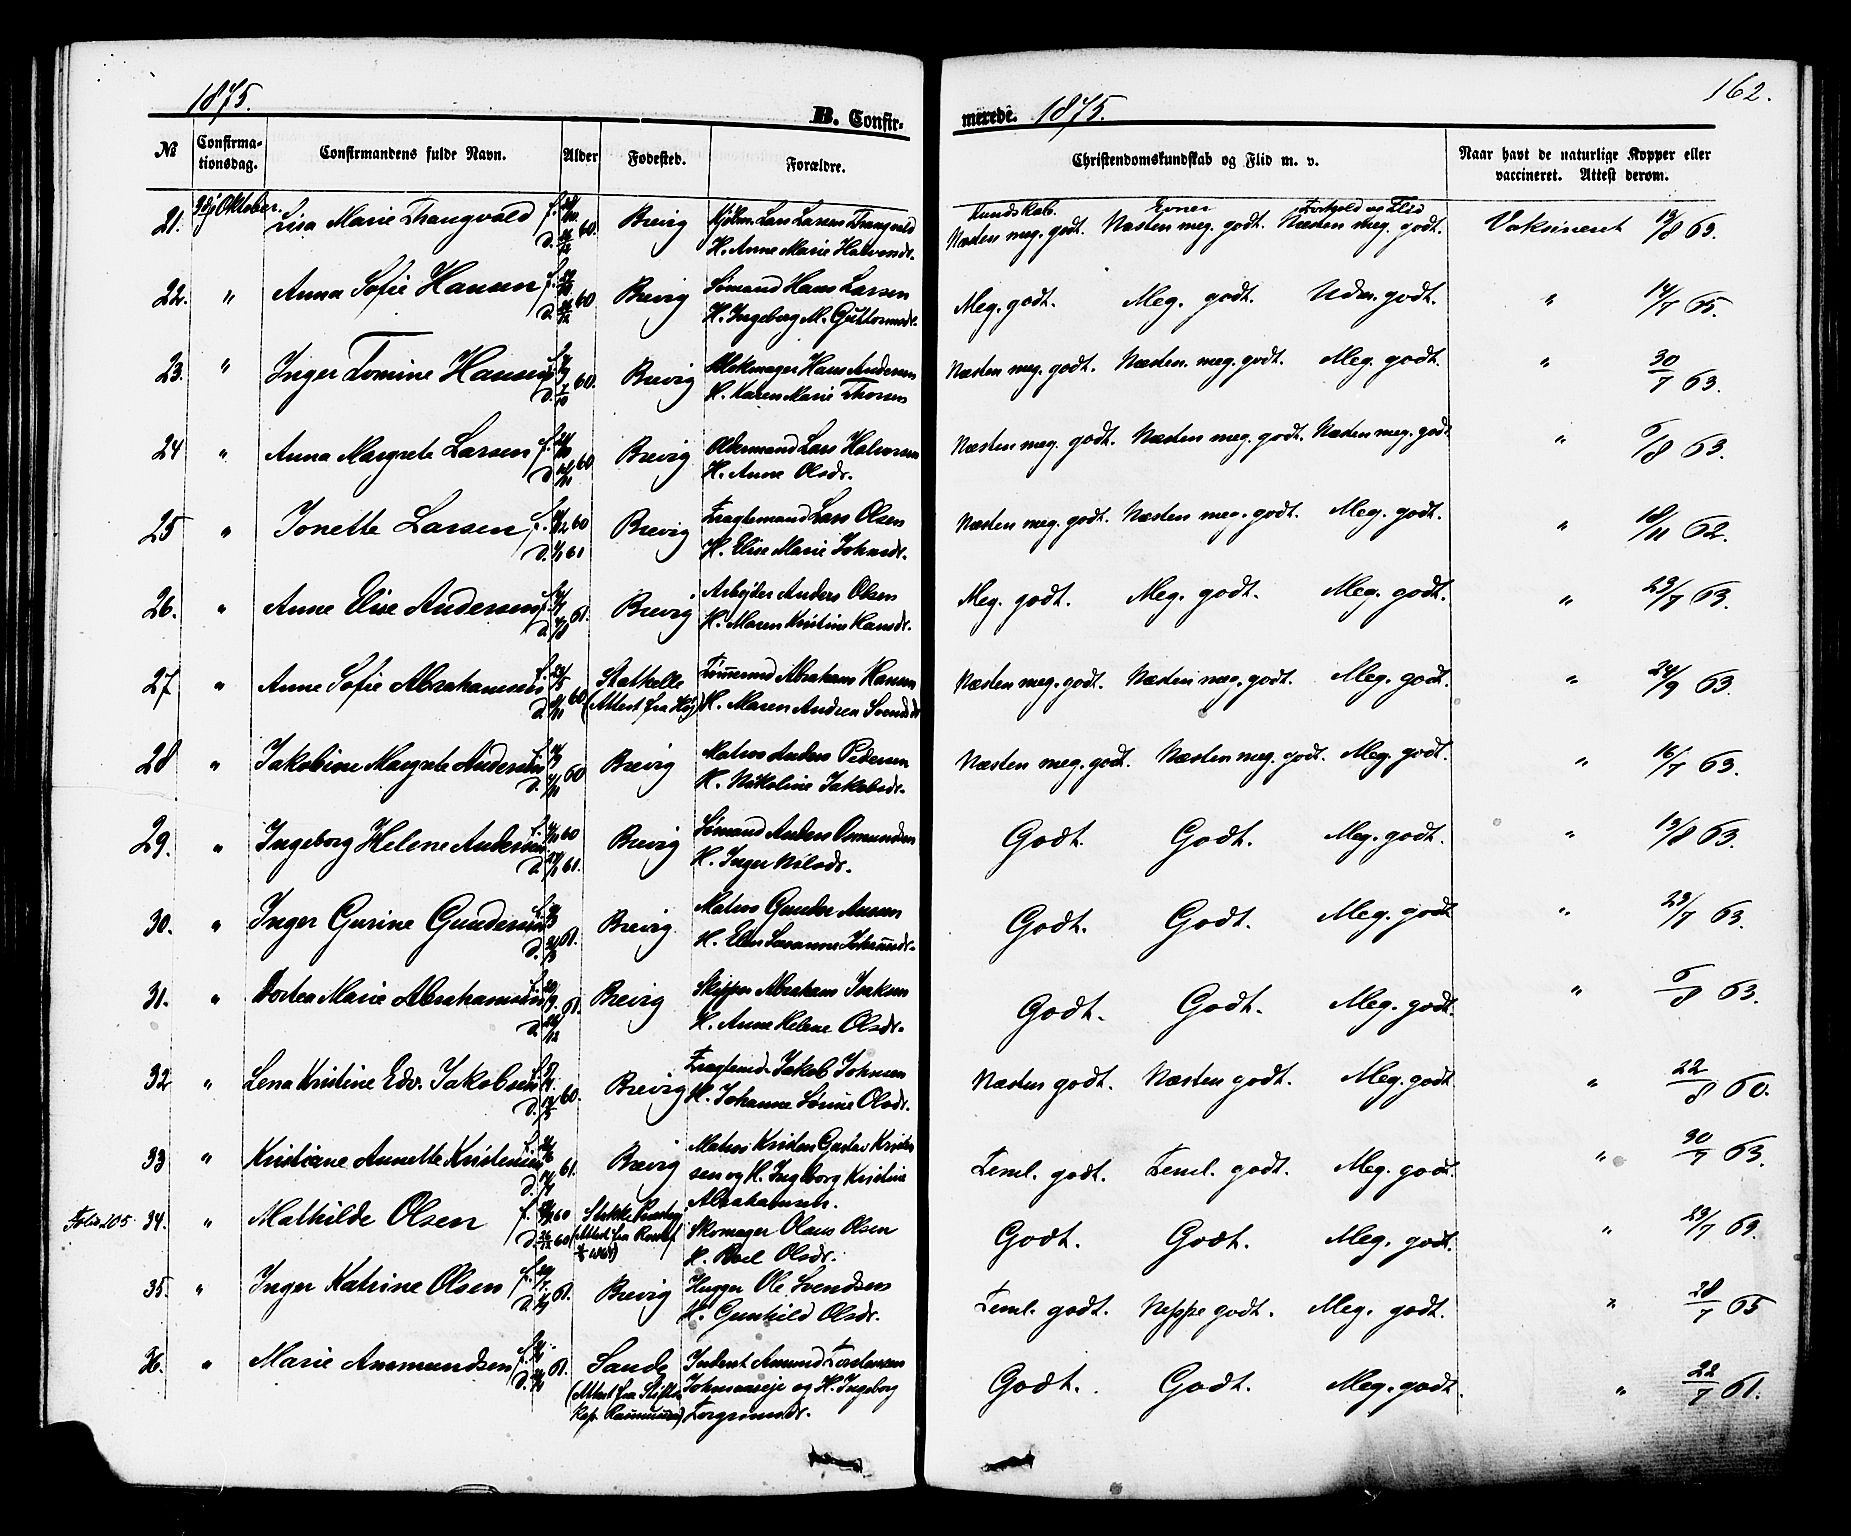 1875.
B. Confir-
merede. 1875.
162.
№ Confirma-tionsdag. Confirmandens fulde Navn. Alder Fødested. Forældre. Christendomskundskab og Flid m. v. Naar havt de naturlige Kopper eller vaccineret. Attest derom.
Kundskab. Evner Forhold og Flid
21. 3dj Oktober. Lisa Marie Thangvald f. d. 60. Brevig Lars Larsen Thangvald Næsten meg. godt. Næsten meg. godt. Næsten meg. godt. Vaksineret 13/8 63.
H. Anne Marie Halvorsdr.
22. " Anna Sofie Hansen f. d. 60 Brevig Sømand Hans Larsen Meg. godt. Meg. godt. Udm. godt. " 14/7 65.
H. Ingeborg M. Guttormsdr.
23. " Inger Tomine Hansen f. d. 7/10 60. Brevig Hans Andersen Næsten meg. godt. Næsten. meg. godt. Meg. godt. " 30/7 63.
H. Karen Marie Thorsen
24 " Anna Margrete Larsen f. d. 60 Brevig Oldermand Lars Halvorsen Næsten meg. godt. Næsten meg. godt. Næsten meg. godt " 5/8 63.
H. Anne Olsdr.
25 " Jonette Larsen f. 60 d. 61 Brevig Fragtemand Lars Olsen Næsten meg. godt. Næsten meg. godt. Meg. godt. " 18/11 62.
H. Elise Marie Johnsdr.
26. " Anne Elise Andersen f. d. 61. Brevig Arbejder Anders Olsen Meg. godt. Meg. godt. Meg. godt. " 23/7 63.
H. Maren Kristine Hansdr.
27 " Anne Sofie Abrahamsen f. d. 60 Stathelle Tømmermd Abraham Hansen Næsten meg. godt. Næsten meg. godt. Meg. godt. " 24/9 63.
(Attest fra ) H. Maren Andrea
28 " Jakobine Margrete Andersen f. d. 60 Brevig Matros Anders Pedersen Næsten meg. godt. Næsten meg. godt. Meg. godt. " 16/7 63.
H. Nikoline Jakobsdr.
29. " Ingeborg Helene Andersen f. 60 d. 61. Brevig Sømand Anders Osmundsen Godt. Godt. Meg. godt. " 13/8 63.
H. Inger Nilsdr.
30. " Inger Gurine Gundersen f. d. 61. Brevig Matros Gunder Godt. Godt. Meg. godt " 23/7 63.
H. Elen Susanne
31. " Dortea Marie Abrahamsen f. d. 61. Brevig Skipper Abraham Isaksen Godt. Godt. Meg. godt. " 5/8 63.
H. Anne Helene Olsdr.
32 " Lena Kristine Edv. Jakobsen f. d. 60. Brevig Fragtemd. Jakob Johnsen Næsten godt. Næsten godt. Meg. godt " 22/8 60.
H. Johanne Sørine Olsdr.
33 " Kristiane Annette Kristensen f. d. 61. Brevig Matros Kristen Gustav Kristen Teml. godt. Teml. godt. Meg. godt. " 30/7 63.
sen og H. Ingeborg Kristine
Abrahamsen.
Folio 205. 34. " Mathilde Olsen f. 60 d. 60 Skomager Olaus Olsen Godt. Godt. Meg. godt. " 23/7 63.
(Attest fra H. Olsdr.
35. " Inger Katrine Olsen f. d. 61. Brevig Hugger Ole Svendsen Teml. godt. Neppe godt. Meg. godt. " 28/7 65
H. Gunhild Olsdr.
36. " Marie Anemundsen f. d. 61. Sande Anund Torstensen Godt. Godt. Meg. godt. " 22/7 61.
(Attest fra Johnsaaseje og H. Ingeborg
Kap. Rasmussen) Torgrimsdr.